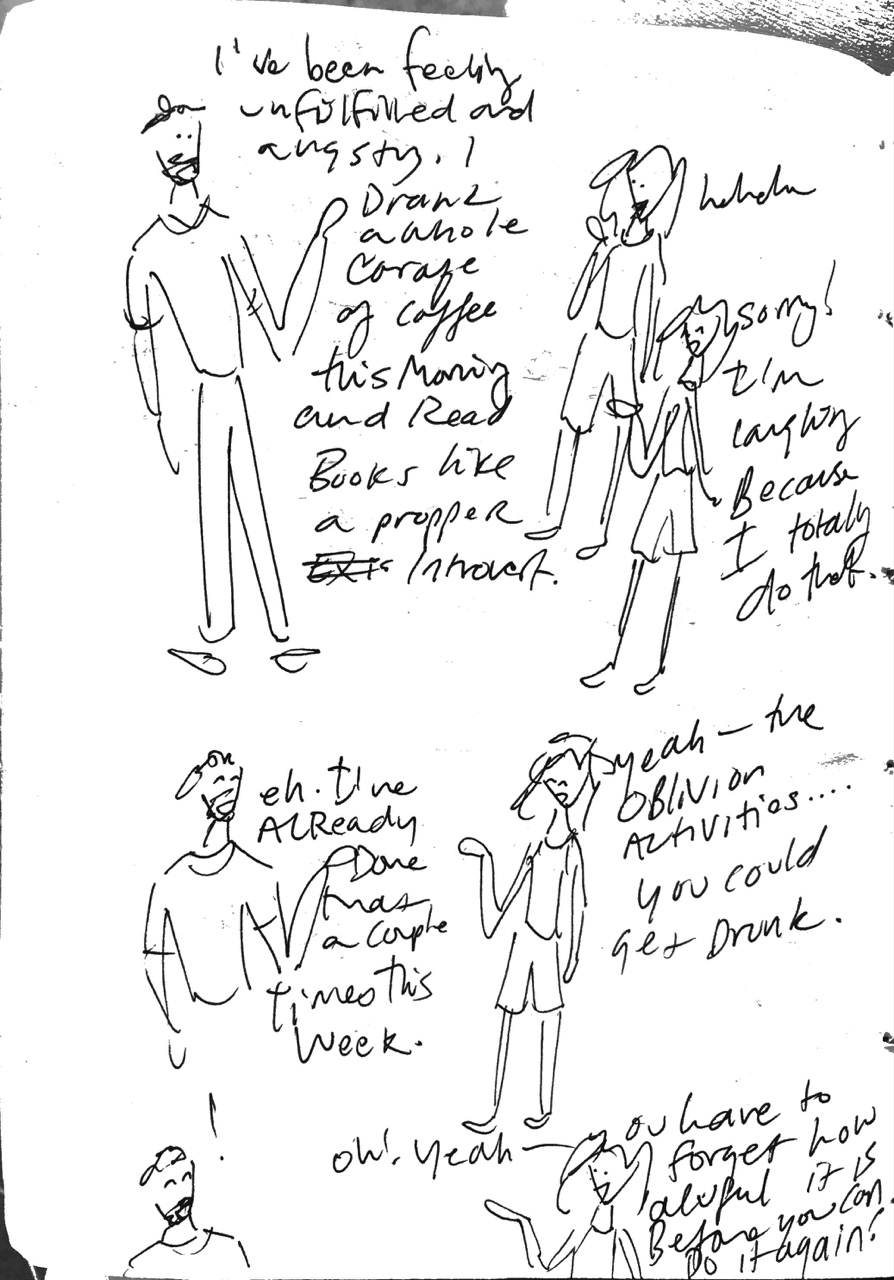 I've been feeling
unfulfilled and
angsty. I
Drank
a whole
Carafe
of coffee
this Morning
and Read
Books like
a propper
Introvert.
hahaha
sorry!
I'm
laughing
Because
I totaly
do that.
yeah — the
OBlivion
Activities....
you could
get Drunk.
eh. I've
ALReady
Done
that
a couple
times this
Week.
!
oh! yeah — you have to
forget how
awful it is
Before you can
Do it again!